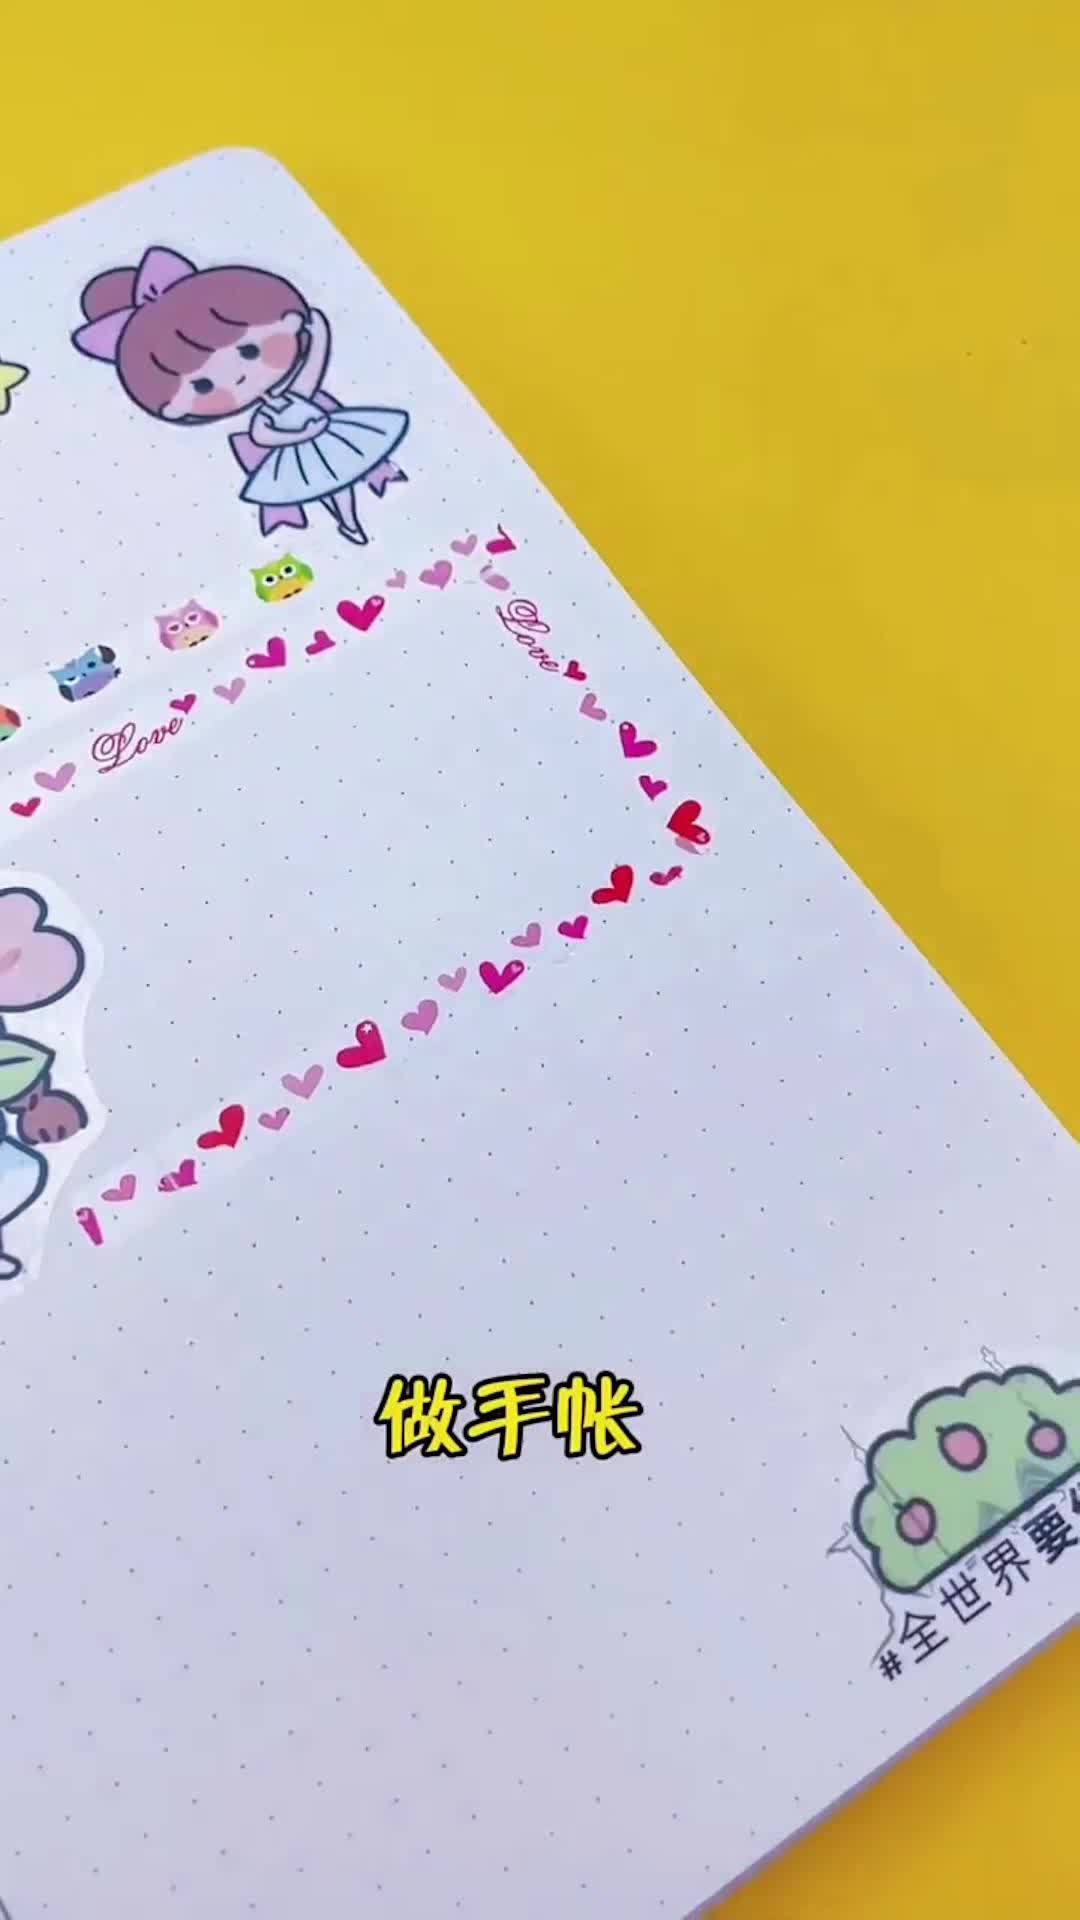 Love
Love
做手帐
#全世界要